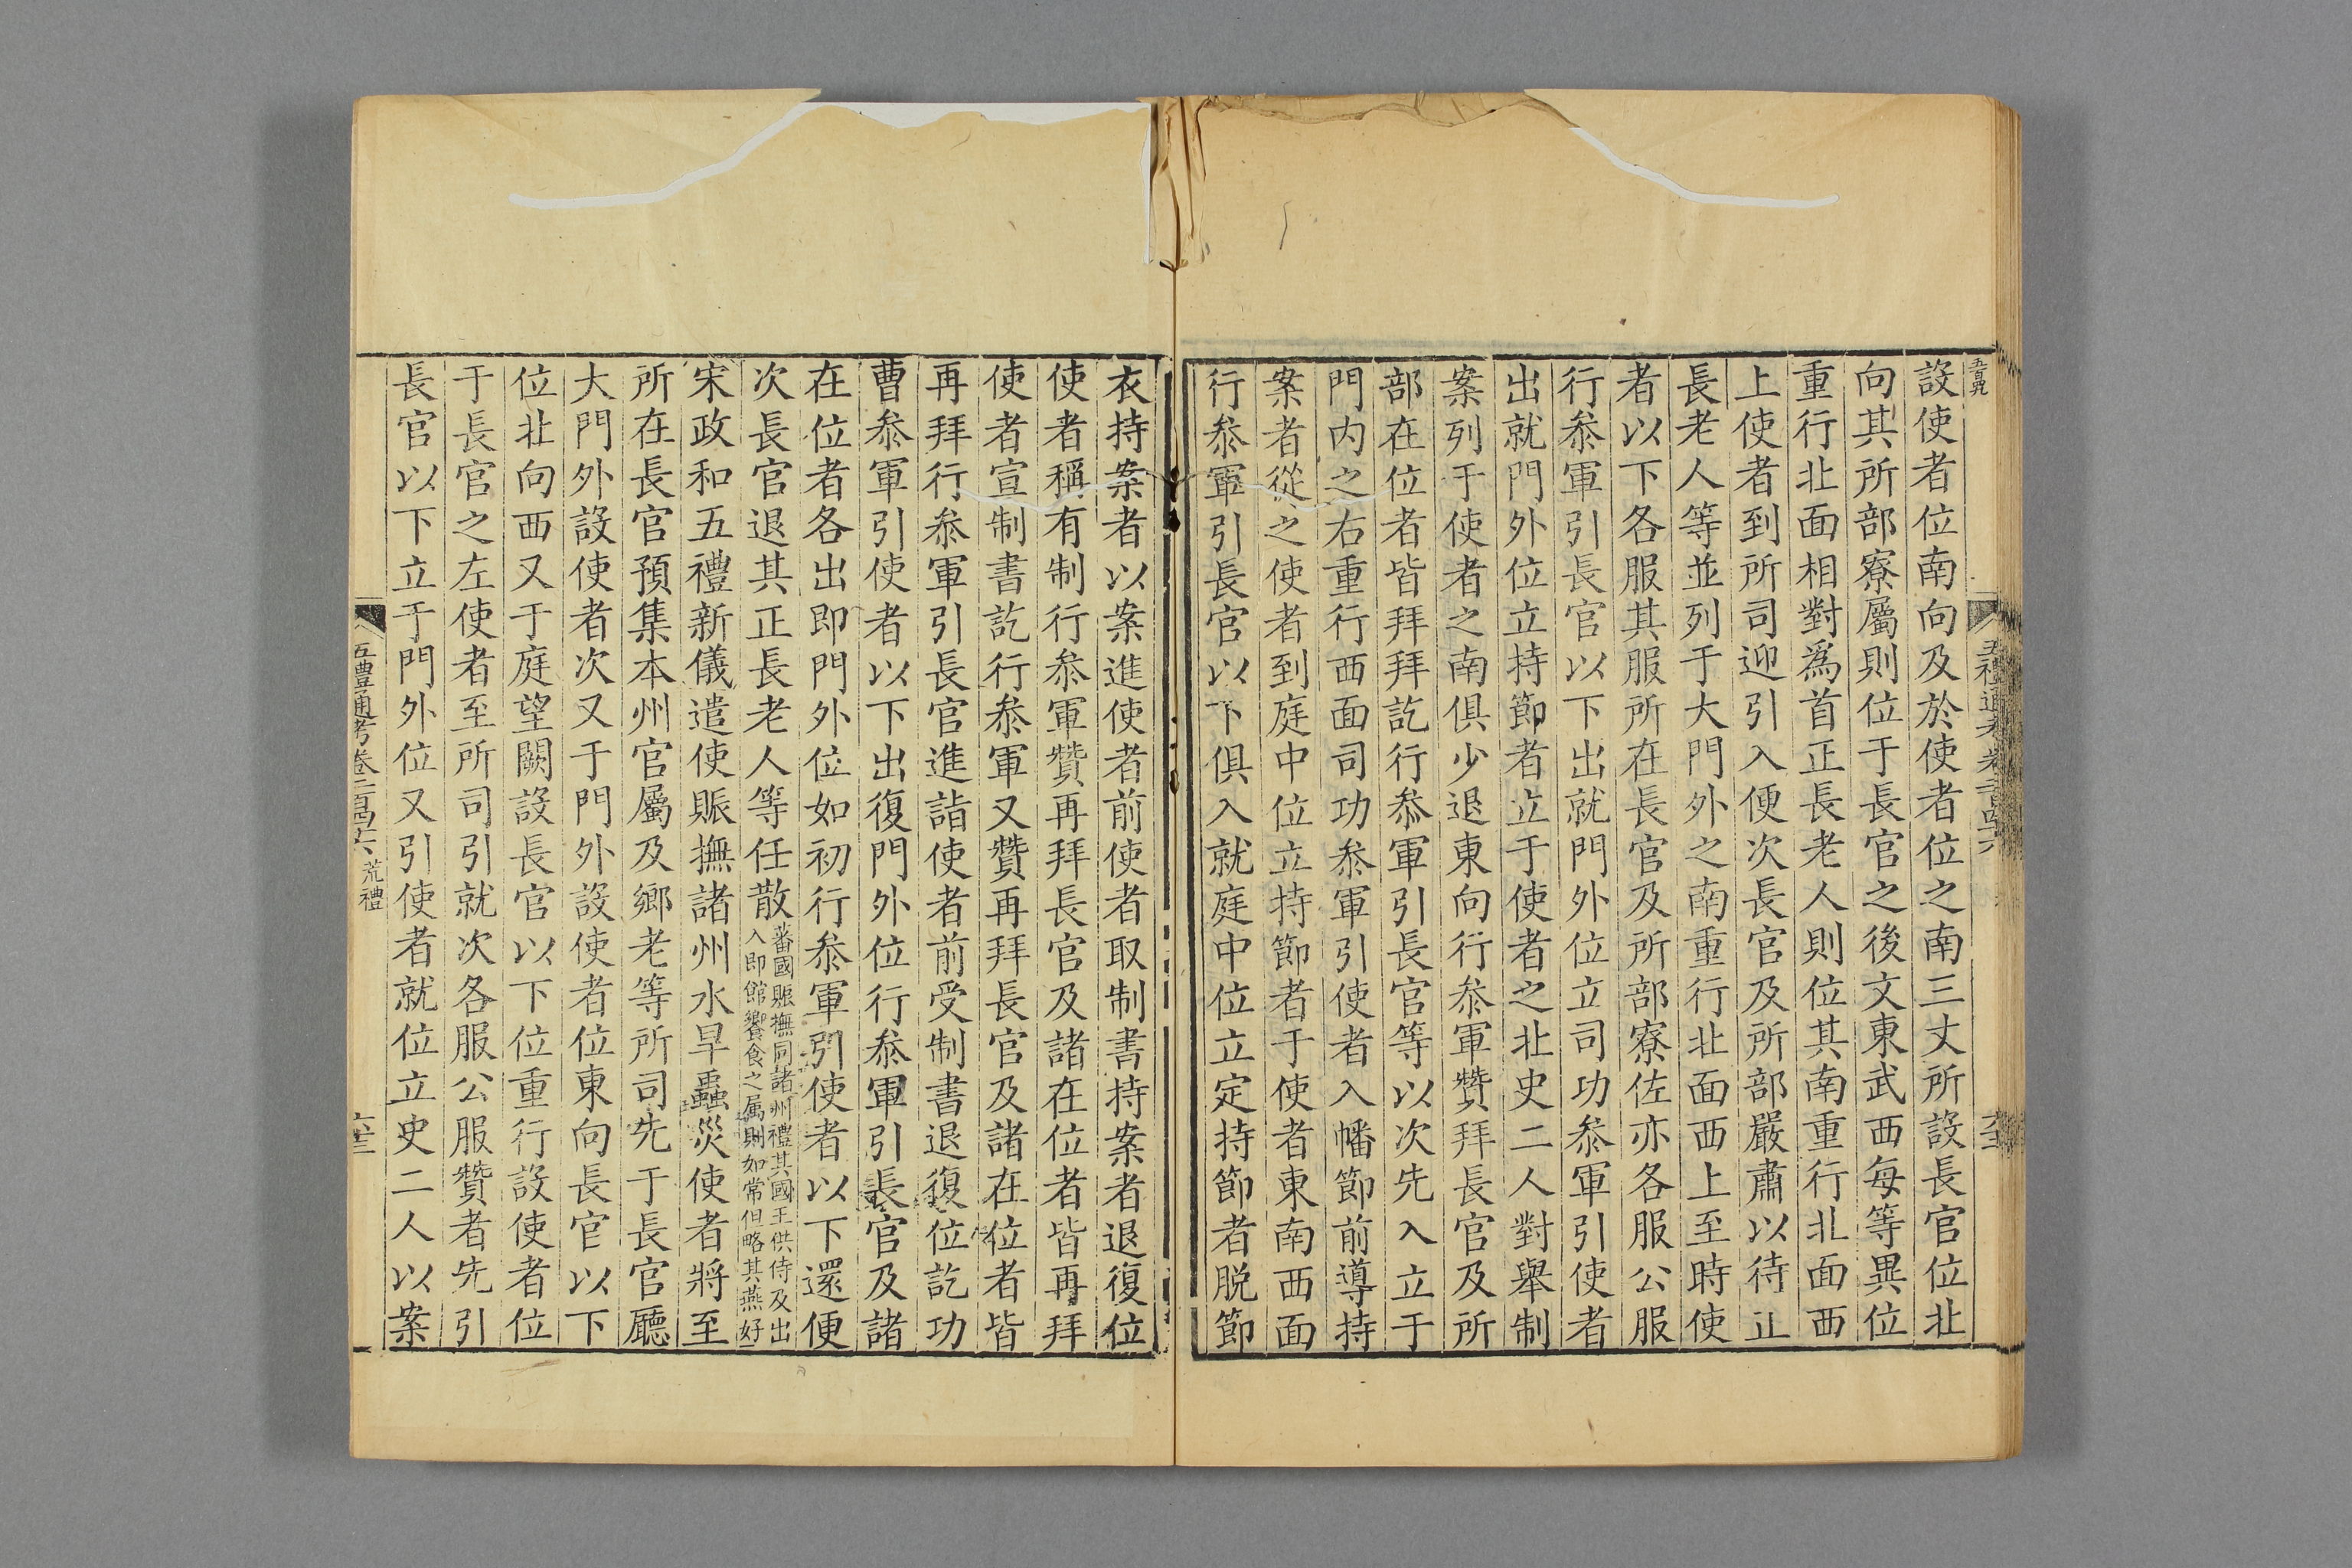 設使者位南向及於使者位之南三丈所設長官位北
向其所部寮屬則位于長官之後文東武西每等異位
重行北面相對爲首正長老人則位其南重行北面西
上使者到所司迎引入便次長官及所部嚴肅以待正
長老人等並列于大門外之南重行北面西上至時使
者以下各服其服所在長官及所部寮佐亦各服公服
行叅軍引長官以下出就門外位立司功叅軍引使者
出就門外位立持節者立于使者之北史二人對舉制
案列于使者之南俱少退東向行叅軍贊拜長官及所
部在位者皆拜拜訖行叅軍引長官等以次先入立于
門内之右重行西面司功叅軍引使者入幡節前導持
案者從之使者到庭中位立持節者于使者東南西面
行叅軍引長官以下俱入就庭中位立定持節者脱節
衣持案者以案進使者前使者取制書持案者退復位
使者稱有制行叅軍贊再拜長官及諸在位者皆再拜
使者宣制書訖行叅軍又贊再拜長官及諸在位者皆
再拜行叅軍引長官進詣使者前受制書退復位訖功
曹叅軍引使者以下出復門外位行叅軍引長官及諸
在位者各出即門外位如初行叅軍引使者以下還便
次長官退其正長老人等任散蕃國賑撫同諸州禮其國王供侍及出
入即館饗食之属則如常但略其燕好
宋政和五禮新儀遣使賑撫諸州水旱蟲災使者將至
所在長官預集本州官屬及鄉老等所司先于長官廳
大門外設使者次又于門外設使者位東向長官以下
位北向西又于庭望闕設長官以下位重行設使者位
于長官之左使者至所司引就次各服公服贊者先引
長官以下立于門外位又引使者就位立史二人以案
五豊通考卷二百四十六 荒禮